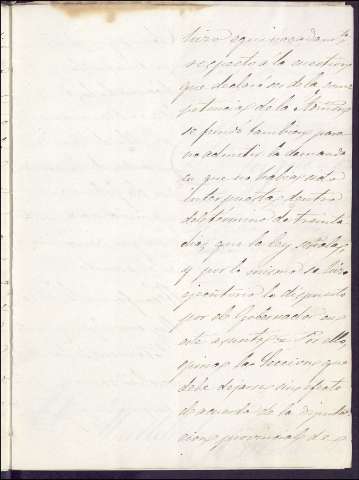 tuvo equivocadamte
respecto a la cuestion
que declaró ser de la com
petencia de la
se fundó tambien para
no admitir la demanda
en que no habia sido
interpuesta dentro
del termino de treinta
dias que la ley señala,
y por lo mismo se hizo
ejecutorio lo dispuesto
por el Gobernador en
este asunto. Por ello,
opina la Seccion que
debe dejarse sin efecto
el acuerdo de la Diputa
cion provincial de